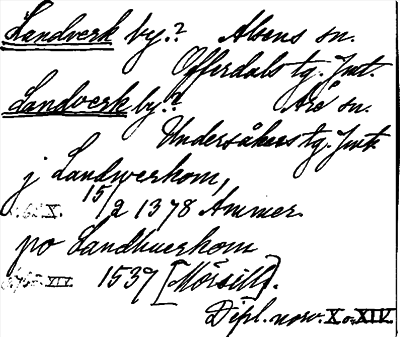 Landverk by.? Alsens sn.
Offerdals tg. Jmt.
Landverk by.? Åre sn.
Undersåkers tg. Jmtl.
j Landwerkom,
X. 15/2 1378 Ammer.
po Landhuerkom
XIV 1537 [Mörsill].
Dipl. norv. X o. XIV.